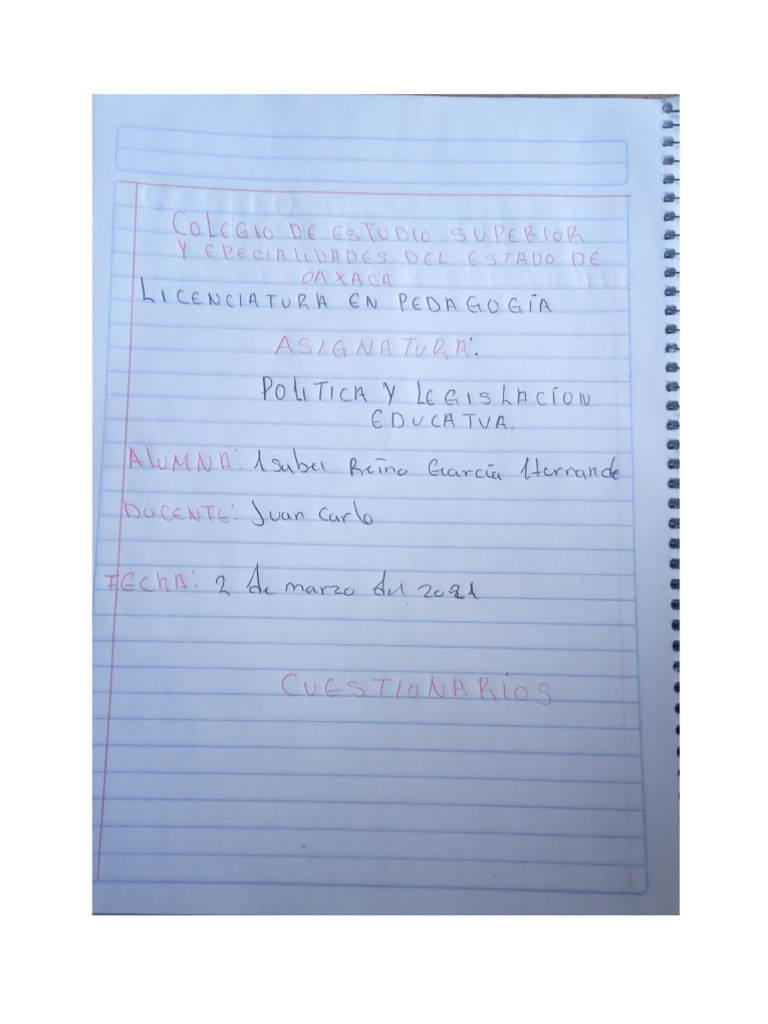 COLEGIO DE ESTUDIO SUPERIOR
Y EPECIALIDADES DEL ESTADO DE
OAXACA
LICENCIATURA EN PEDAGOGÍA
ASIGNATURA:
POLITICA Y LEGISLACÍON
EDUCATVA.
ALUMNA: Isabel Reína García Hernande
DOCENTE: Juan Carlo
FECHA: 2 de marzo del 2021
CUESTIONARÍOS